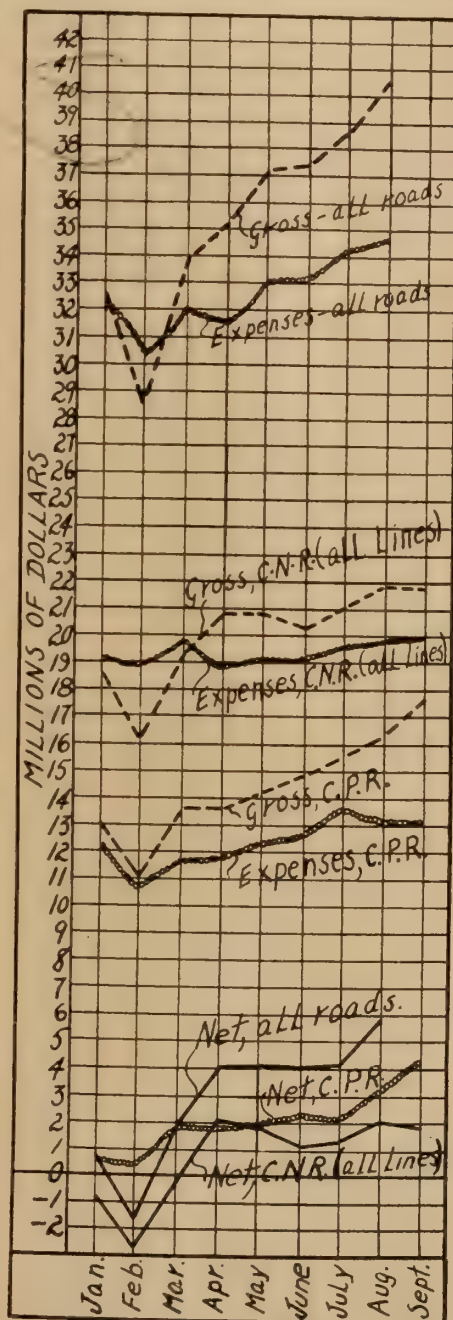 42
41
40
39
38
37
36
35
34
33
32
31
30
29
28
27
26
25
24
23
22
21
20
19
18
17
16
15
14
13
12
11
10
9
8
7
6
5
4
3
2
1
0
-1
-2
MILLIONS OF DOLLARS
Gross-all roads
Expenses-all roads
Gross, C.N.R. (all Lines)
Expenses, C.N.R. (all lines)
Gross, C.P.R.
Expenses, C.P.R.
Net, all roads.
Net, C.P.R.
Net, C.N.R. (all lines)
Jan. Feb. Mar. Apr. May June July Aug. Sept.